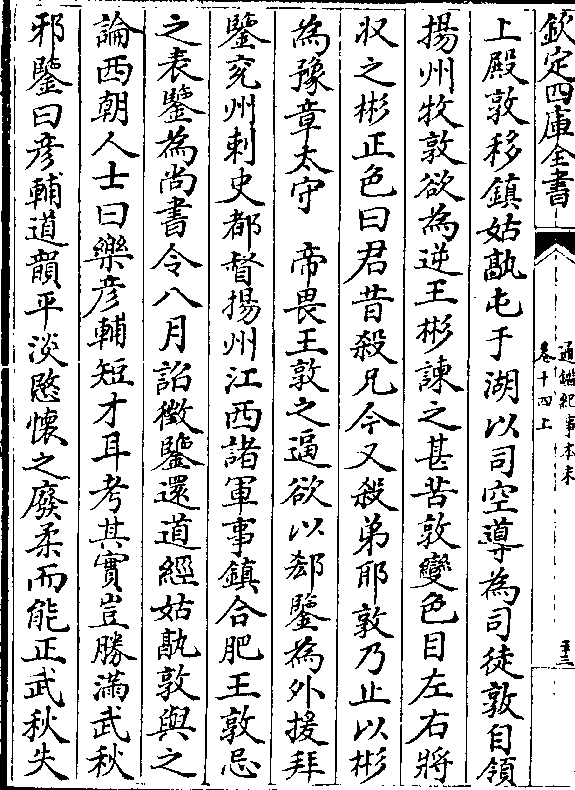 欽定四庫全書
通鑑紀事本末
卷十四上
至三
上殿敦移鎮姑孰屯于湖以司空導為司徒敦自領
揚州牧敦欲為逆王彬諫之甚苦敦變色目左右將
収之彬正色曰君昔殺兄今又殺弟耶敦乃止以彬
為豫章太守　帝畏王敦之逼欲以郄鑒為外援拜
鑒兖州刺史都督揚州江西諸軍事鎮合肥王敦忌
之表鑒為尚書令八月詔徴鑒還道經姑孰敦與之
論西朝人士曰樂彦輔短才耳考其實豈勝滿武秋
邪鑒曰彦輔道韻平淡愍懷之廢柔而能正武秋失